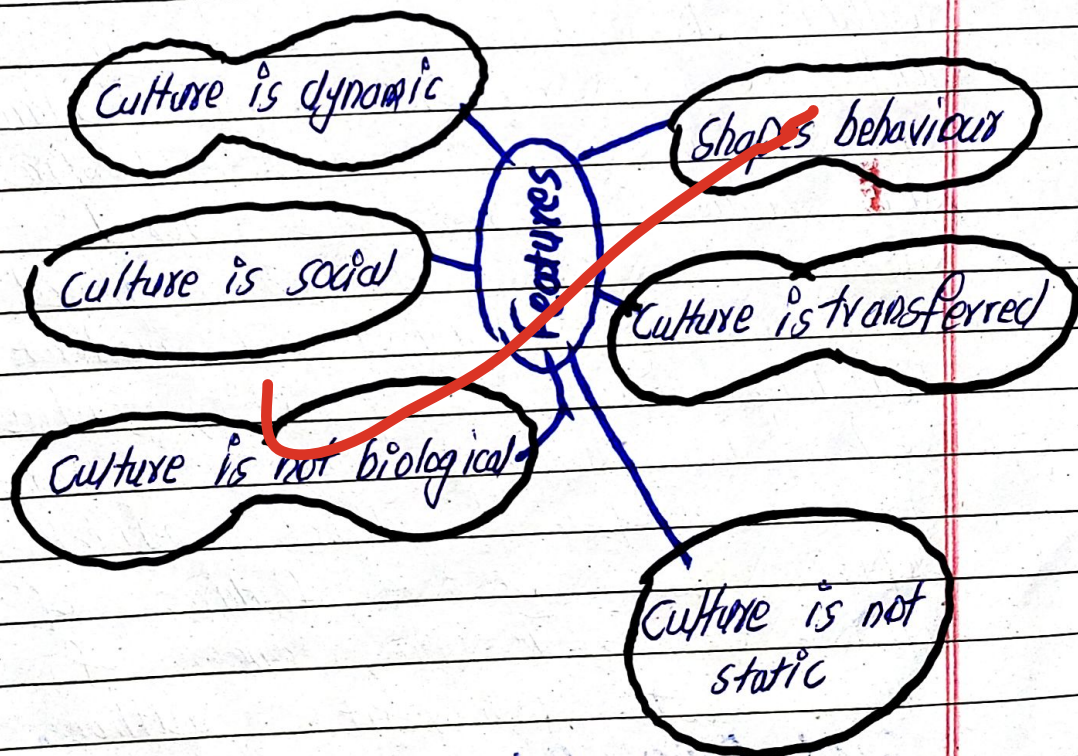 Culture is dynamic
Shapes behaviour
Features
Culture is social
Culture is transferred
Culture is not biological
Culture is not
static